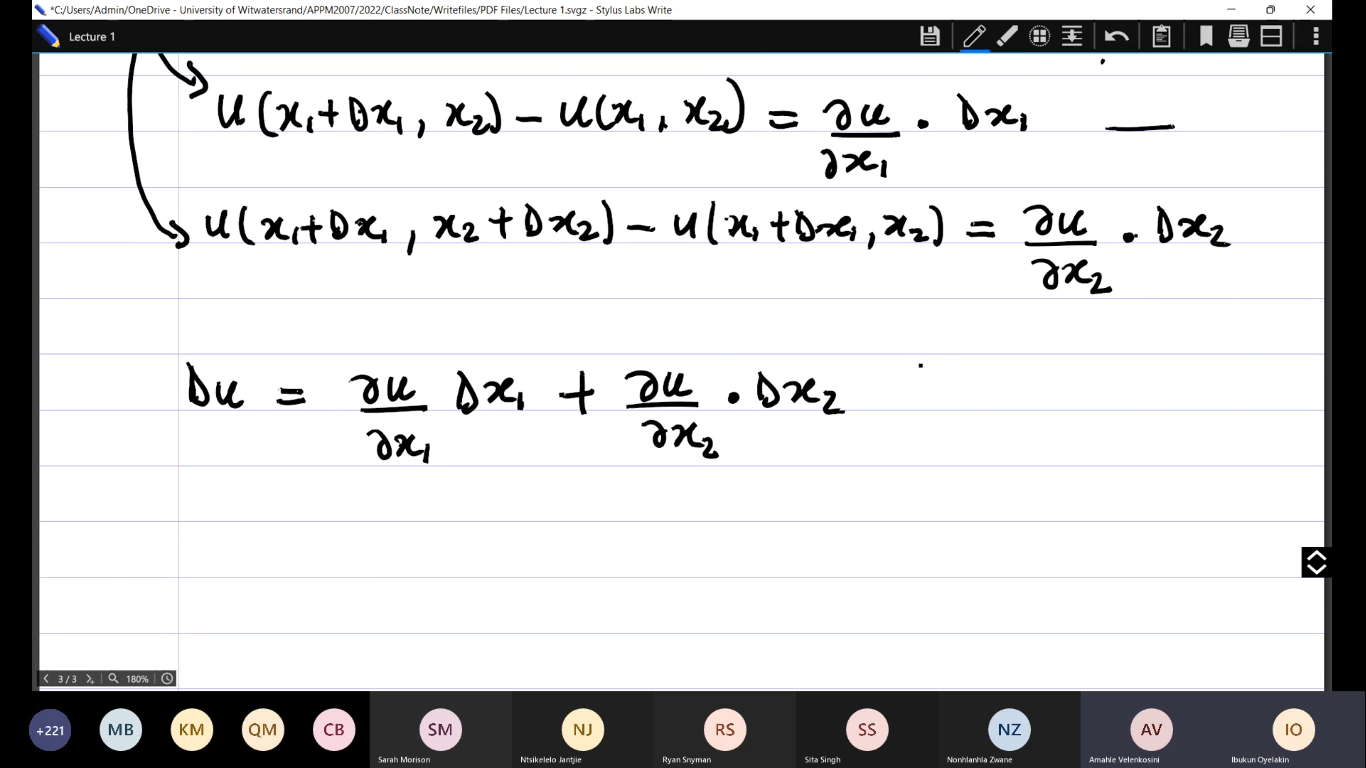 *C:/Users/Admin/OneDrive - University of Witwatersrand/APPM2007/2022/ClassNote/Writefiles/PDF Files/Lecture 1.svgz - Stylus Labs Write
Lecture 1
u(x₁+Δx₁, x₂) - u(x₁, x₂) = ∂u/∂x₁ · Δx₁ —
u(x₁+Δx₁, x₂+Δx₂) - u(x₁+Δx₁, x₂) = ∂u/∂x₂ · Δx₂
Δu = ∂u/∂x₁ Δx₁ + ∂u/∂x₂ · Δx₂
3/3 180%
+221 MB KM QM CB SM NJ RS SS NZ AV IO
Sarah Morison Ntsikelelo Jantjie Ryan Snyman Sita Singh Nonhlanhla Zwane Amahle Velenkosini Ibukun Oyelakin